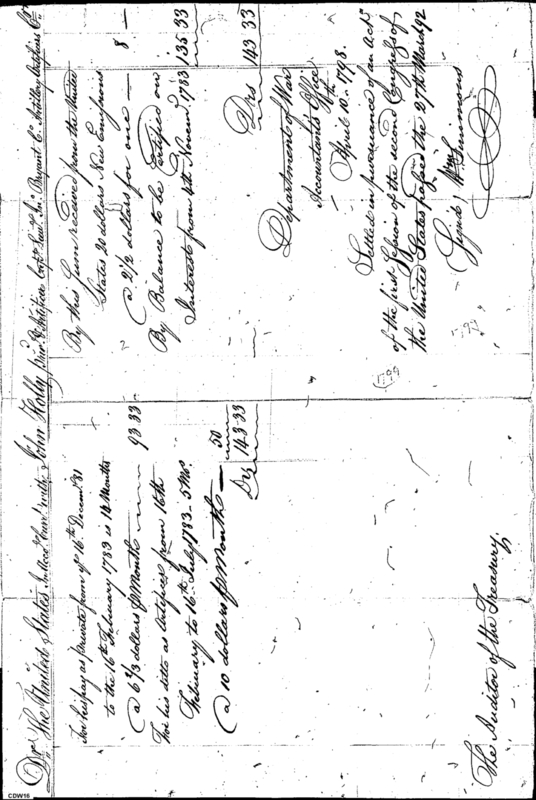 Dr. The United States in Acct. Currt. with John Holly priv. & Artificer Capt. Bryant's C. Artillery Artificers Cr.
For his pay as private from ye 16th Decemr. 81
to the 16th February 1783 is 14 Months
@ 6 2/3 dollars ⅌ Month 93 33
For his ditto as Artificer from 16th
February to 16th July 1783. 5 Mos.
@ 10 dollars ⅌ Month 50
Drs 143.33
The Auditor of the Treasury.
By this Sum received from the United
States 20 dollars New Emissions
@ 2 1/2 dollars for one 8 —
By Balance to be Certified on
Interest from 4th Novemr. 1783 135 33
Drs 143 33
Department of War
Accountant's Office
April 10th. 1798.
Settled in pursuance of an Act
of the first Session of the second Congress of
the United States passed the 27th March 92
Wm Simmons
CDW16